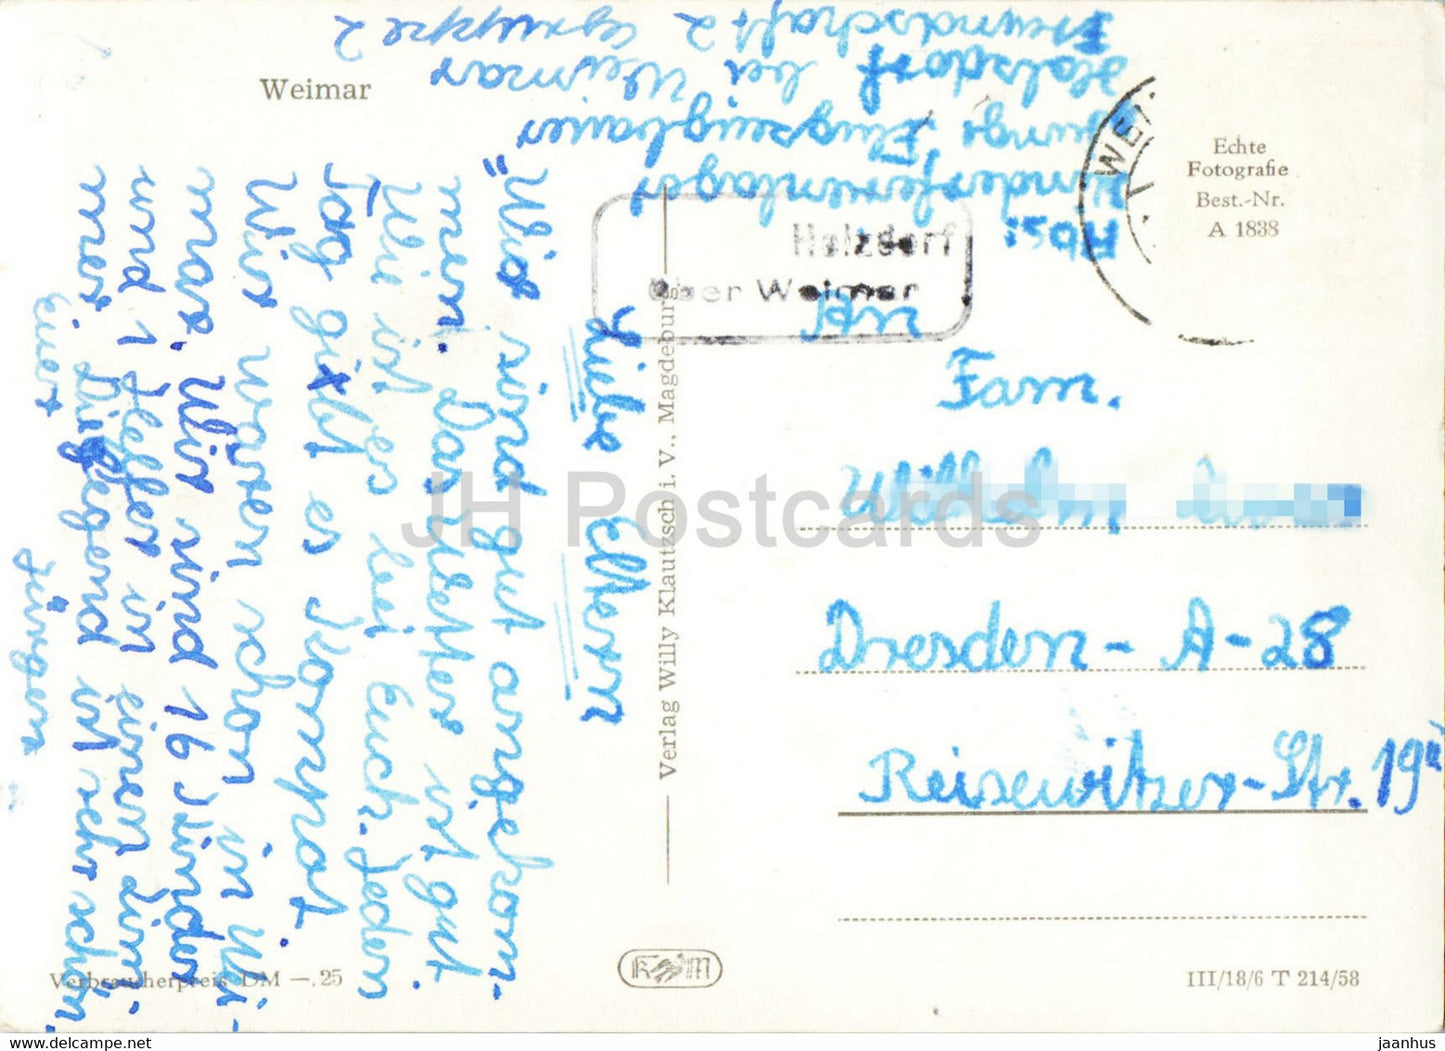 Weimar
Abs:
Kinderferienlager
"Junge Flugzeugbauer"
Holzdorf bei Weimar
Freundschaft 2 Gruppe 2
Echte
Fotografie
Best.-Nr.
A 1838
WEI
Holzdorf
über Weimar
An
Fam.
Wilhelm
Dresden - A - 28
Reisewitzer-Str. 19
Liebe Eltern
"Wir sind gut angekom-
men. Das Wetter ist gut
Wie ist es bei Euch. Jeden
Tag gibt es Kompot.
Wir waren schon in Wei-
mar. Wir sind 16 Kinder
und 1 Helfer in einem Zim-
mer. Die Gegend ist sehr schön.
Euer
Jürgen
Verlag Willy Klautzsch i. V., Magdeburg
JH Postcards
Verbraucherpreis DM —.25
K M
III/18/6 T 214/58
www.delcampe.net
jaanhus